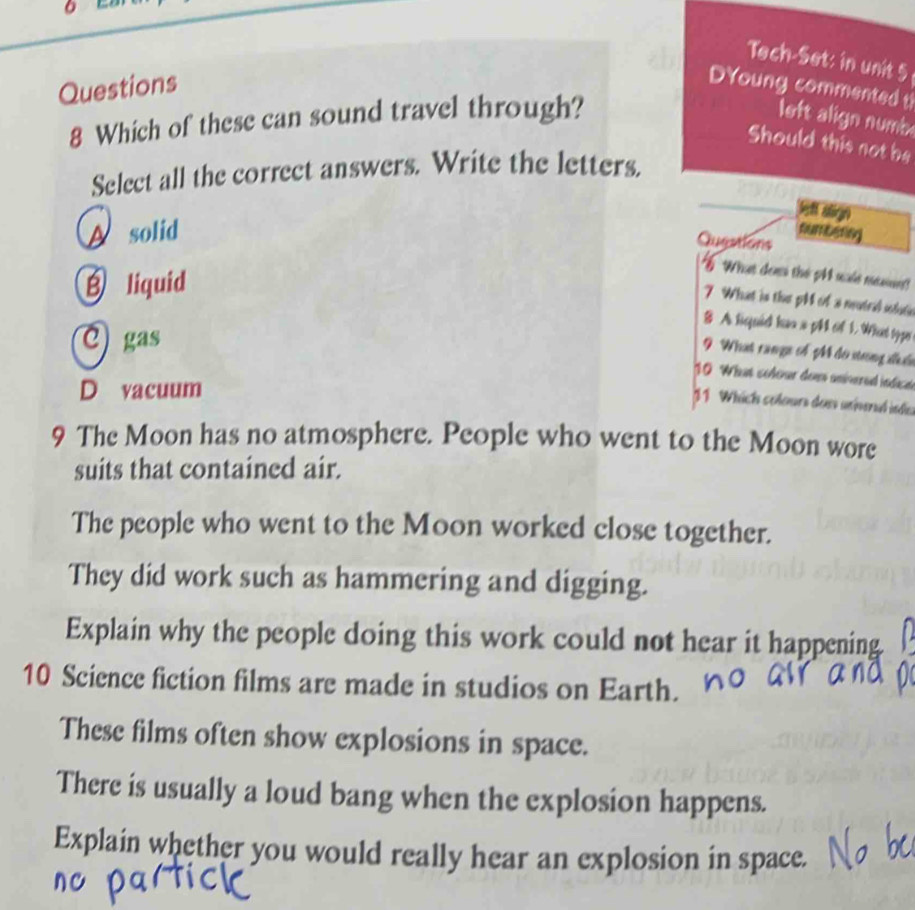 6
Questions
8 Which of these can sound travel through?
Select all the correct answers. Write the letters.
A solid
B liquid
C gas
D vacuum
9 The Moon has no atmosphere. People who went to the Moon wore
suits that contained air.
The people who went to the Moon worked close together.
They did work such as hammering and digging.
Explain why the people doing this work could not hear it happening.
no air and
10 Science fiction films are made in studios on Earth.
These films often show explosions in space.
There is usually a loud bang when the explosion happens.
Explain whether you would really hear an explosion in space. No bec
no particle
Tech-Set: in unit 5
DYoung commented
left align numb
Should this not be
left align
numbering
Questions
6 What does the pH scale measure?
7 What is the pH of a neutral
8 A liquid has a pH of 1. What type
9 What range of pH do strong
10 What colour does universal
11 Which colours does universal